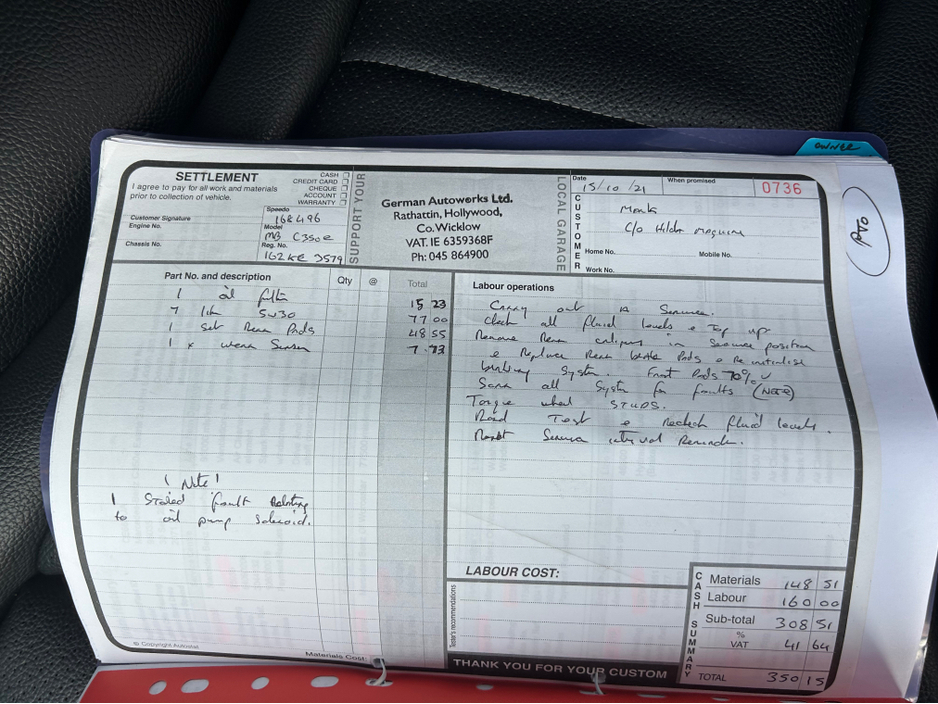 OWNER
PTO
SETTLEMENT
I agree to pay for all work and materials
prior to collection of vehicle.
CASH
CREDIT CARD
CHEQUE
ACCOUNT
WARRANTY
Customer Signature
Engine No.
Chassis No.
Speedo
168496
Model
MB C350e
Reg. No.
162KE 3579
SUPPORT YOUR
German Autoworks Ltd.
Rathattin, Hollywood,
Co.Wicklow
VAT. IE 6359368F
Ph: 045 864900
LOCAL GARAGE
CUSTOMER
Date
15/10/21
When promised
0736
C/o Hilda Maguire
Home No.
Mobile No.
Work No.
Part No. and description Qty @ Total
1 oil filter 15 23
7 litr 5w30 77 00
1 set Rear Pads 48 55
1 x wear Sensor 7 73
(Note)
1 Stored fault Relating
to oil pump Solenoid.
© Copyright Autostat
Materials Cost:
Labour operations
Carry out Service.
Check all fluid levels & Top up
Remove Rear calipers in Service position
& Replace Rear brake Pads & Reinitialise
braking System. Front Pads 70%
Scan all System for faults (NOTE)
Torque wheel STUDS.
Road Test & recheck fluid levels.
Reset Service interval Reminder.
LABOUR COST:
Tester's recommendations
THANK YOU FOR YOUR CUSTOM
CASH SUMMARY
Materials 148 51
Labour 160 00
Sub-total 308 51
% VAT 41 64
TOTAL 350 15